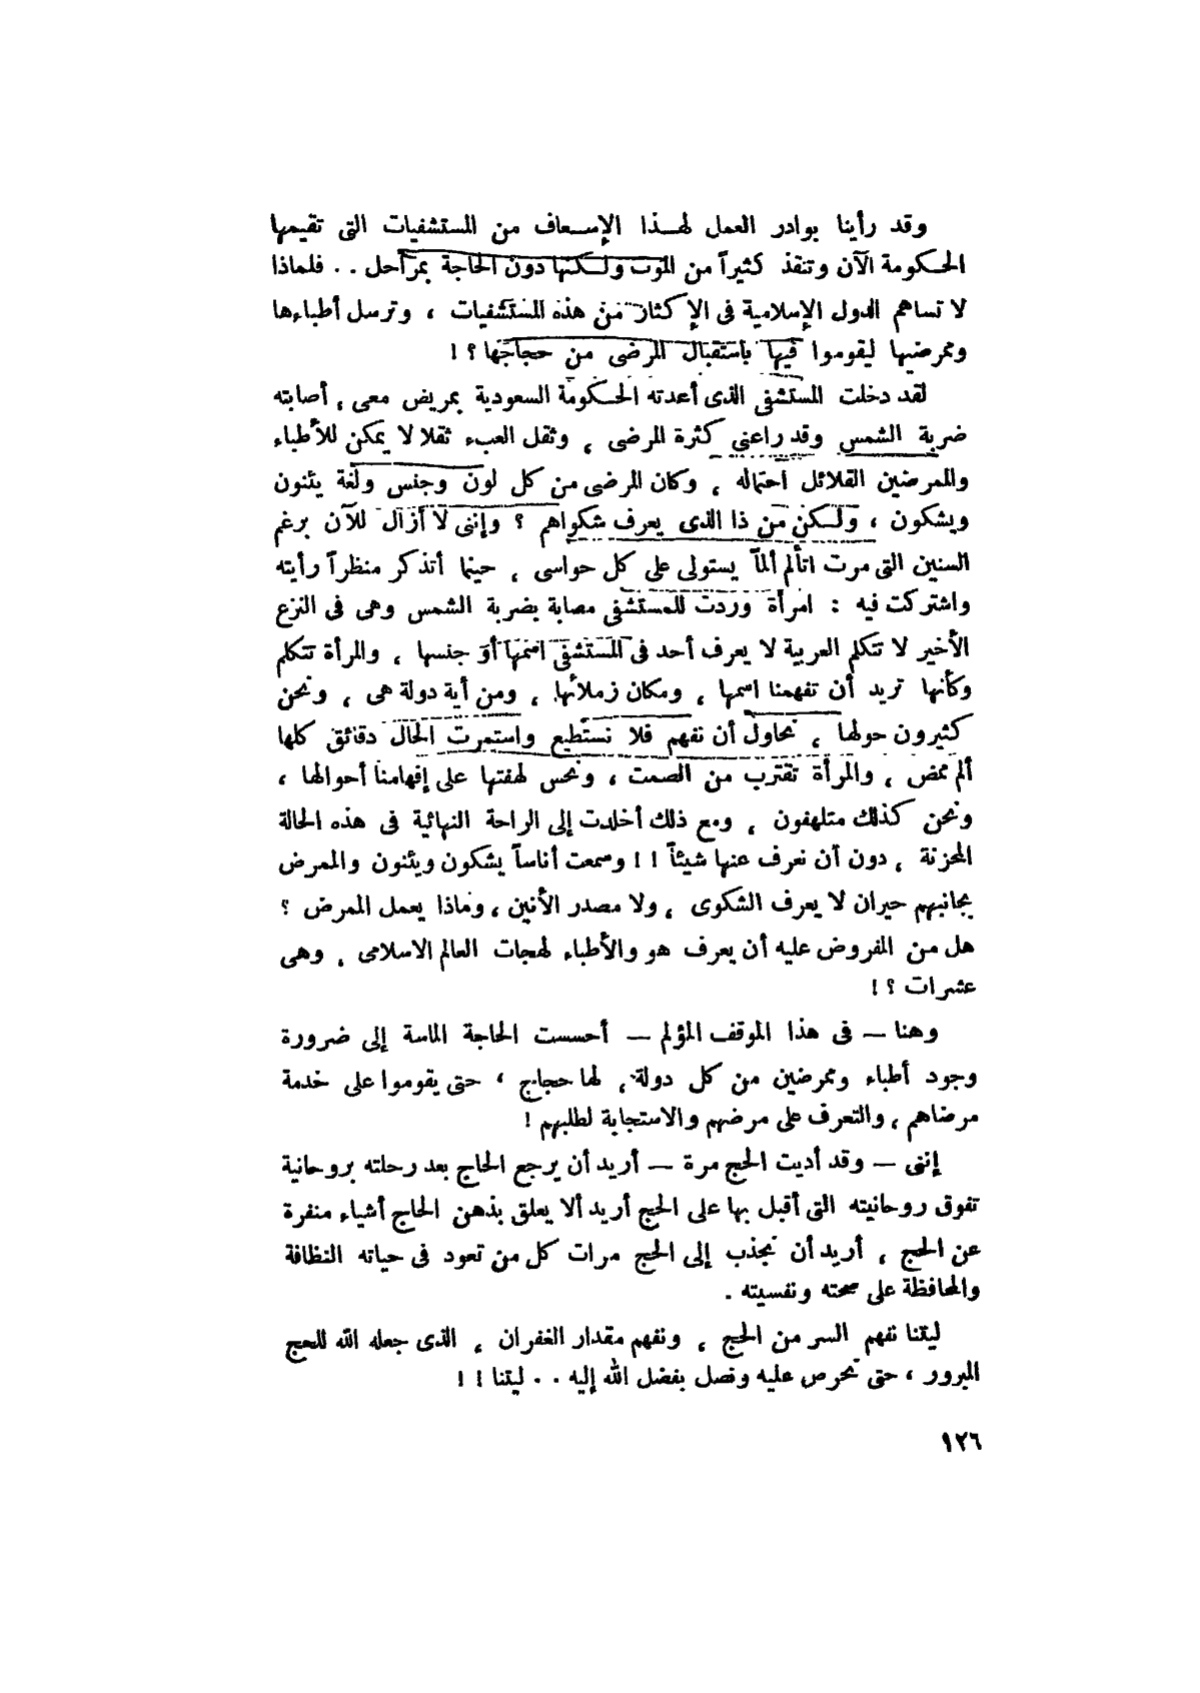 وقد رأينا بوادر العمل لهـذا الإسـعاف من المستشفيات التى تقيمها
الحكومة الآن وتنقذ كثيراً من الموت ولكنها دون الحاجة بمراحل . . فلماذا
لا تساهم الدول الإسلامية فى الإكثار من هذه المستشفيات ، وترسل أطباءها
وممرضيها ليقوموا فيها باستقبال المرضى من حجاجها ؟ !
لقد دخلت المستشفى الذى أعدته الحكومة السعودية بمريض معى ، أصابته
ضربة الشمس وقد راعنى كثرة المرضى ، وثقل العبء ثقلا لا يمكن للأطباء
والممرضين القلائل احتماله ، وكان المرضى من كل لون وجنس ولغة يئنون
ويشكون ، ولكن من ذا الذى يعرف شكواهم ؟ وإننى لا أزال للآن برغم
السنين التى مرت اتألم ألماً يستولى على كل حواسى ، حينما أتذكر منظراً رأيته
واشتركت فيه : امرأة وردت للمستشفى مصابة بضربة الشمس وهى فى النزع
الأخير لا تتكلم العربية لا يعرف أحد فى المستشفى اسمها أو جنسها ، والمرأة تتكلم
وكأنها تريد أن تفهمنا اسمها ، ومكان زملائها ، ومن أية دولة هى ، ونحن
كثيرون حولها ، نحاول أن نفهم فلا نستطيع واستمرت الحال دقائق كلها
ألم ممض ، والمرأة تقترب من الصمت ، ونحس لهفتها على إفهامنا أحوالها ،
ونحن كذلك متلهفون ، ومع ذلك أخلدت إلى الراحة النهائية فى هذه الحالة
المحزنة ، دون أن نعرف عنها شيئاً ! ! وسمعت أناساً يشكون ويئنون والممرض
بجانبهم حيران لا يعرف الشكوى ، ولا مصدر الأنين ، وماذا يعمل الممرض ؟
هل من المفروض عليه أن يعرف هو والأطباء لهجات العالم الاسلامى ، وهى
عشرات ؟ !
وهنا — فى هذا الموقف المؤلم — أحسست الحاجة الماسة إلى ضرورة
وجود أطباء وممرضين من كل دولة ، لها حجاج ، حتى يقوموا على خدمة
مرضاهم ، والتعرف على مرضهم والاستجابة لطلبهم !
إننى — وقد أديت الحج مرة — أريد أن يرجع الحاج بعد رحلته بروحانية
تفوق روحانيته التى أقبل بها على الحج أريد ألا يعلق بذهن الحاج أشياء منفرة
عن الحج ، أريد أن نجذب إلى الحج مرات كل من تعود فى حياته النظافة
والمحافظة على صحته ونفسيته .
ليتنا نفهم السر من الحج ، ونفهم مقدار الغفران ، الذى جعله الله للحج
المبرور ، حتى نحرص عليه ونصل بفضل الله إليه . . ليتنا ! !
١٢٦